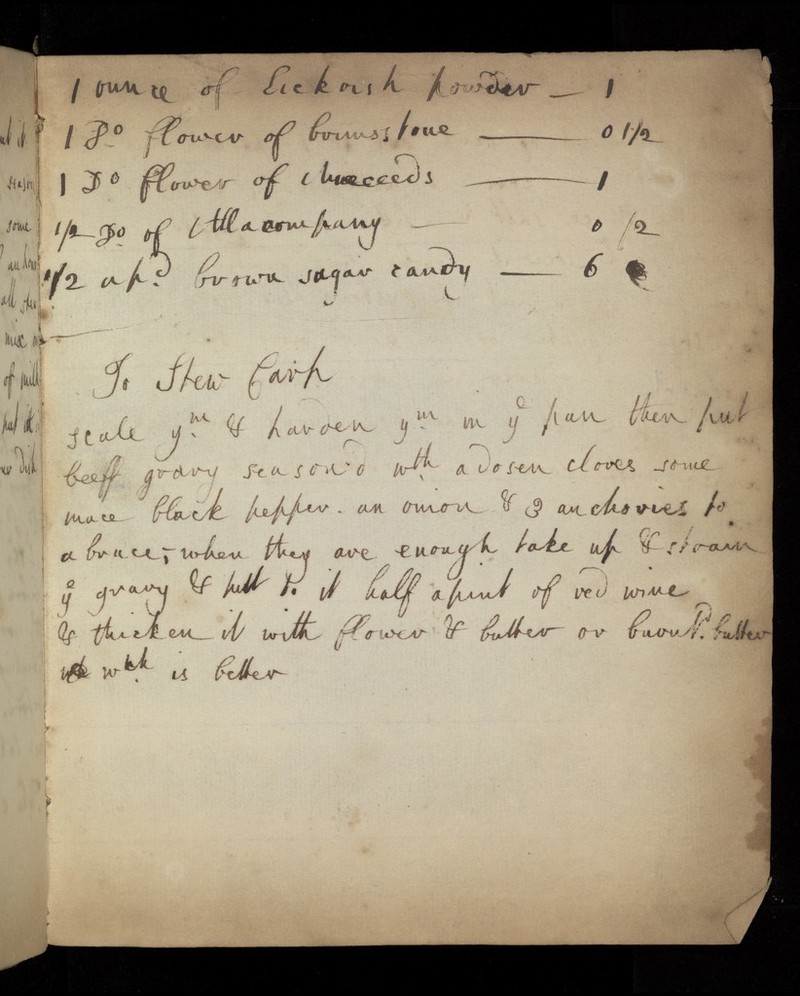 1 ounce of Lickorish powder — 1
1 Do flower of brimsstone — 0 1/2
1 Do flower of — 1
1/2 Do of Allacompany — 0 /2
1/2 a pd brown sugar candy — 6
To Stew Carp
scale ym & harden ym in ye pan then put
beeff gravy season'd wth a dosen cloves some
mace black pepper. an onion & 3 anchovies to
a brace; when they are enough take up & strain
ye gravy & putt to it half a pint of red wine
& thicken it with flower & butter or burnt butter
wch is better
some
of mill